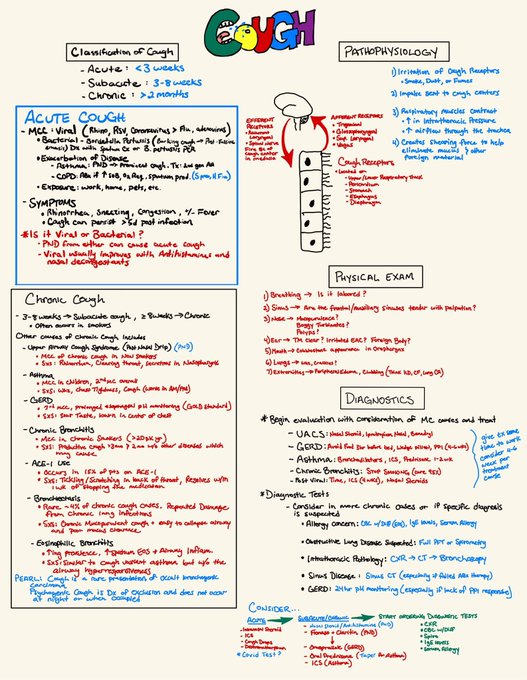 COUGH
Classification of Cough
- Acute: <3 weeks
- Subacute: 3-8 weeks
- Chronic: >2 months
ACUTE COUGH
- MCC: Viral (Rhino, RSV, Coronavirus > Flu, adenovirus)
- Bacterial - Bordetella Pertussis (Barking cough → Post-tussive
emesis) Dx with Sputum Cx or B. pertussis PCR
- Exacerbation of Disease
- Asthma: PND → Provincial Cough. Tx: 2nd gen AA
- COPD: Abx if ↑ SOB, O2 Req, Sputum prod (S.pneu, H.Flu)
- Exposure: work, home, pets, etc.
- SYMPTOMS
• Rhinorrhea, Sneezing, Congestion, +/- Fever
• Cough can persist >5d post infection
*Is it Viral or Bacterial?
- PND from either can cause acute cough
- Viral usually improves with Antihistamines and
nasal decongestants
Chronic Cough
- 3-8 weeks → Subacute cough, ≥8 weeks → Chronic
• Often occurs in smokers
Other causes of Chronic Cough includes
- Upper Airway Cough Syndrome (Post Nasal Drip) (PND)
• MCC of chronic cough in Non Smokers
• SxS: Rhinorrhea, Clearing throat, Secretions in Nasopharynx
- Asthma
• MCC in Children, 2nd MCC overall
• SxS: Wheeze, Chest Tightness, Cough (worse in AM/PM)
- GERD
• 3rd MCC, prolonged esophageal pH monitoring (Gold Standard)
• SxS: Sour Taste, burn in center of chest
- Chronic Bronchitis
• MCC in Chronic Smokers (>20pk yr)
• SxS: Productive cough >3mo/2yrs w/o other diseases which
may cause
- ACE-I Use
• Occurs in 15% of pts on ACE-I
• SxS: Tickling/Scratching in back of throat, Resolves within
1wk of stopping the medication
- Bronchiectasis
• Rare ~4% of chronic cough cases. Repeated Damage
from Chronic lung infections
• SxS: Chronic Mucopurulent cough + easy to collapse airway
and poor mucus clearance
- Eosinophilic Bronchitis
• ↑ing prevalence, ↑Sputum EOS + Airway Inflam.
• SxS: Similar to cough variant asthma but w/o the
airway hyperresponsiveness
PEARL: Cough is a rare presentation of occult bronchogenic
carcinoma
Psychogenic Cough is Dx of exclusion and does not occur
at night or when occupied
PATHOPHYSIOLOGY
1) Irritation of Cough Receptors
• Smoke, Dust, or Fumes
2) Impulse sent to Cough centers
3) Respiratory muscles contract
• ↑ in Intrathoracic Pressure
• ↑ airflow through the trachea
4) Creates Shearing Force to help
eliminate mucus & other
foreign material
EFFERENT
Receptors
• Recurrent
Laryngeal
• Spinal Nerve
AFFERENT RECEPTORS
• Trigeminal
• Glossopharyngeal
• Sup. Laryngeal
• Vagus
Cough Receptors
Located on
• Upper/Lower Respiratory Track
• Pericardium
• Stomach
• Esophagus
• Diaphragm
PHYSICAL EXAM
1) Breathing → Is it labored?
2) Sinus → Are the frontal/maxillary sinuses tender with palpation?
3) Nose → Mucopurulence?
Boggy Turbinates?
Polyps?
4) Ear → TM clear? Irritated EAC? Foreign Body?
5) Mouth → Cobblestone appearance in Oropharynx
6) Lungs →
7) Extremities → Peripheral Edema, Clubbing (Think
DIAGNOSTICS
* Begin evaluation with consideration of MC causes and treat
- UACS: Nasal Steroid, Ipratropium Nasal, Benadryl
- GERD: Avoid Food 2hr before bed, Wedge pillow, PPI (4-6wks)
- Asthma: Bronchodilators, ICS, Prednisone 1-2wk
- Chronic Bronchitis: STOP SMOKING
- Post viral: Time, ICS (2wks), Nasal Steroids
give tx some
time to work
consider 4-6
week per
treatment
course
* Diagnostic Tests
- Consider in more chronic cases or if specific diagnosis
is suspected
• Allergy Concern: CBC w/Diff (EOS), IgE levels, Serum Allergy
• Obstructive Lung Disease Suspected: Full PFT or Spirometry
• Intrathoracic Pathology: CXR → CT → Bronchoscopy
• Sinus Disease: Sinus CT (especially if Failed ABx therapy)
• GERD: 24hr pH monitoring (especially if lack of PPI response)
CONSIDER...
ACUTE
- Intranasal Steroid
- ICS
- Cough Drops
- Dextromethorphan
*Covid Test?
SUBACUTE/CHRONIC
- Nasal Steroid/Antihistamine (PND)
• Flonase + Claritin (PND)
- Omeprazole (GERD)
- Oral Prednisone (Taper for Asthma)
- ICS (Asthma)
START ORDERING DIAGNOSTIC TESTS
• CXR
• CBC w/Diff
• Spiro
• IgE levels
• Serum Allergy